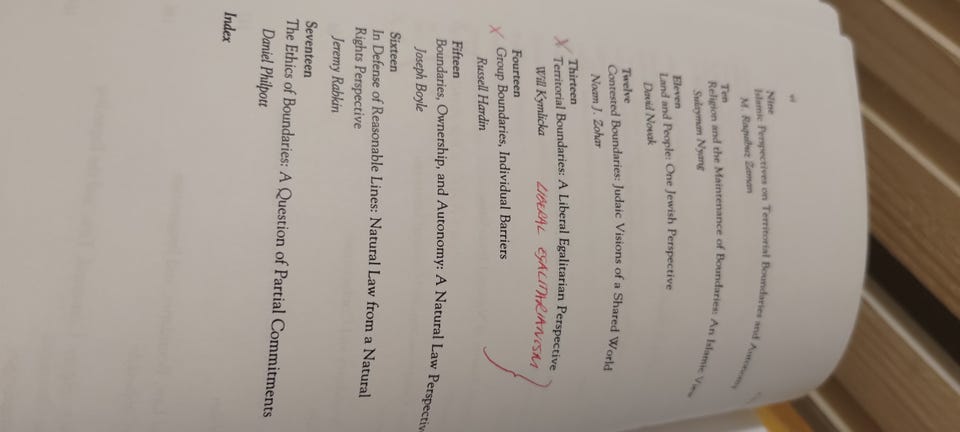 vi
Nine
Islamic Perspectives on Territorial Boundaries and Autonomy
M. Raquibuz Zaman
Ten
Religion and the Maintenance of Boundaries: An Islamic View
Sulayman Nyang
Eleven
Land and People: One Jewish Perspective
David Novak
Twelve
Contested Boundaries: Judaic Visions of a Shared World
Noam J. Zohar
X Thirteen
Territorial Boundaries: A Liberal Egalitarian Perspective
Will Kymlicka LIBERAL EGALITARIANISM
Fourteen
X Group Boundaries, Individual Barriers
Russell Hardin
Fifteen
Boundaries, Ownership, and Autonomy: A Natural Law Perspectiv
Joseph Boyle
Sixteen
In Defense of Reasonable Lines: Natural Law from a Natural
Rights Perspective
Jeremy Rabkin
Seventeen
The Ethics of Boundaries: A Question of Partial Commitments
Daniel Philpott
Index